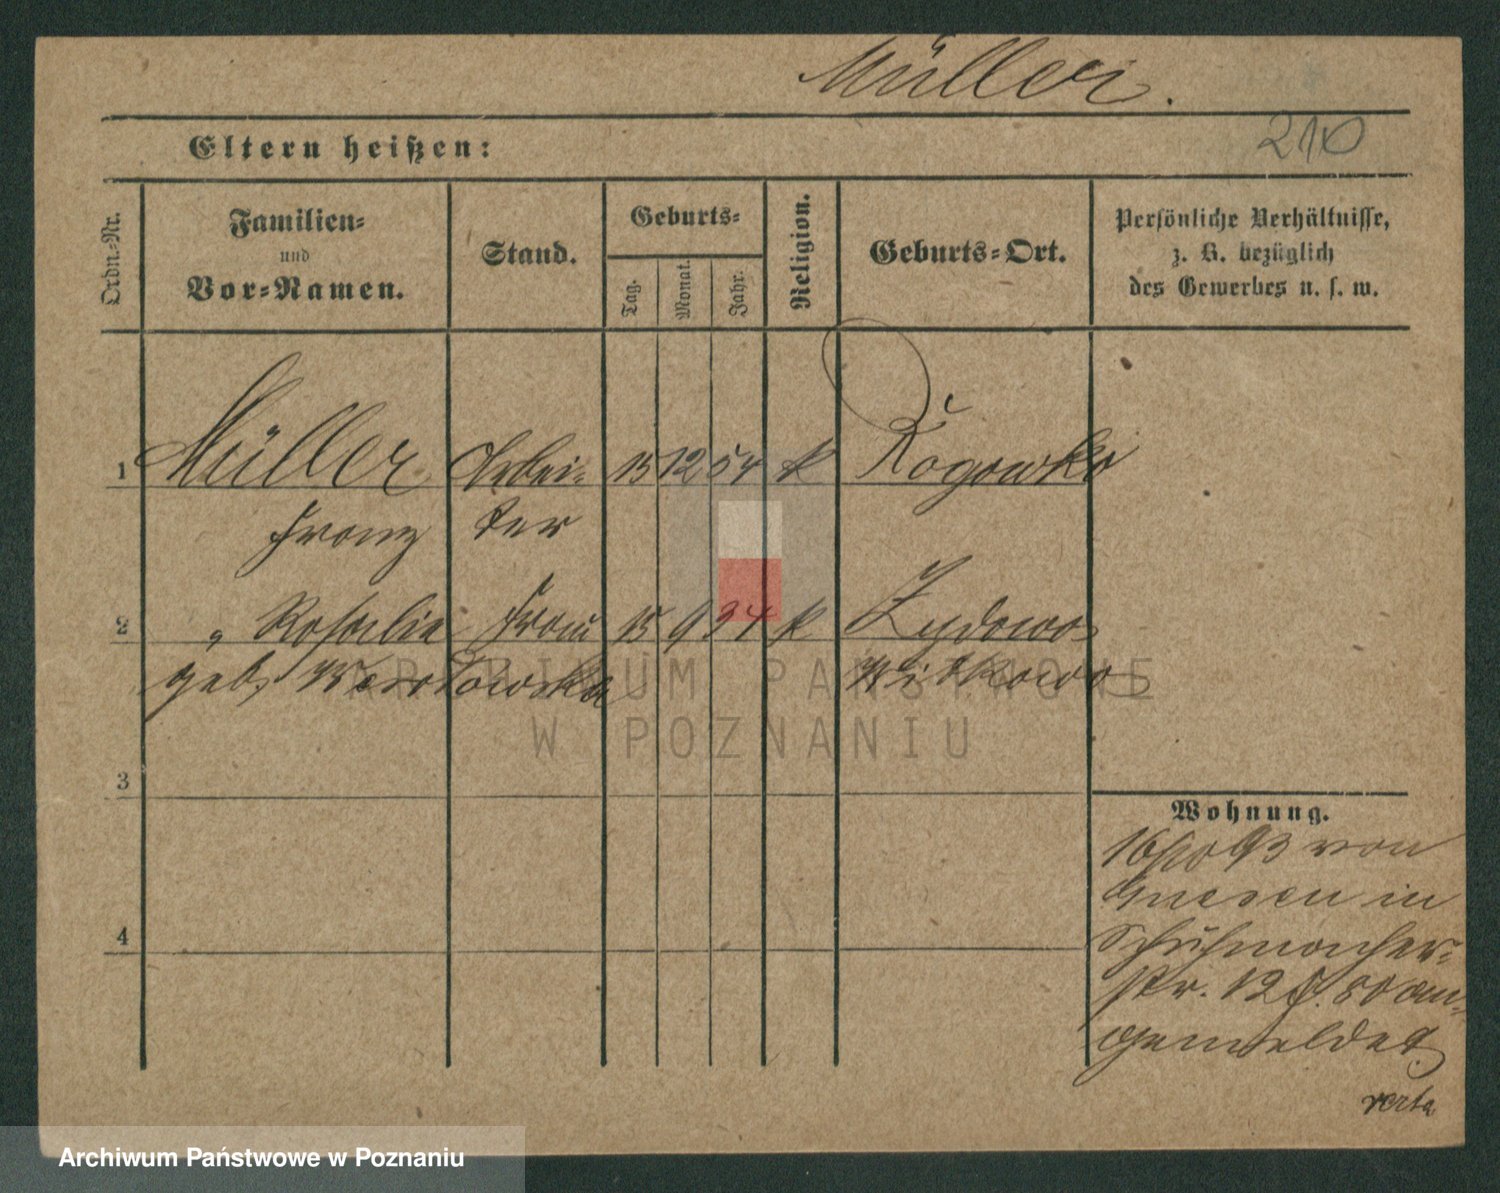 Müller.
Eltern heißen:
210
Ordn.-Nr.
Familien-
und
Vor-Namen.
Stand.
Geburts-
Tag.
Monat.
Jahr.
Religion.
Geburts-Ort.
Persönliche Verhältnisse,
z. B. bezüglich
des Gewerbes u. s. w.
1 Müller Arbei- 15 12 54 k Rogowko
Franz ter
2 " Rosalie Frau 15 9 34 k Zydowo
geb. Witkowo
3
4
Wohnung.
16/10 93 von
Gnesen in
Schuhmacher-
str. 12 an-
gemeldet
verte
ARCHIWUM PAŃSTWOWE
W POZNANIU
Archiwum Państwowe w Poznaniu